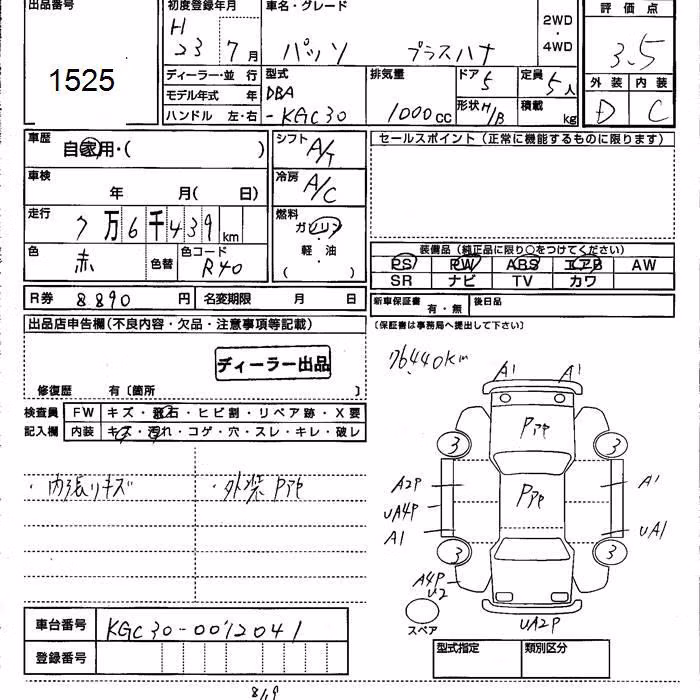 出品番号
1525
初度登録年月
H 23 7月
車名・グレード
パッソ プラスハナ
2WD
・
4WD
評価点
3.5
外装 内装
D C
ディーラー・並 行
モデル年式 年
ハンドル 左・右
型式
DBA
-KGC30
排気量
1000cc
ドア 5
形状 H/B
定員 5人
積載 kg
車歴
自家用・( )
車検
年 月( 日)
走行
7万6千439km
色
赤
色替
色コード
R40
シフト
A/T
冷房
A/C
燃料
ガソリン
・
軽・油
( )
R券 8890円
名変期限 月 日
セールスポイント(正常に機能するものに限ります)
装備品(純正品に限り○をつけてください)
PS PW ABS エアB AW
SR ナビ TV カワ
新車保証書 有・無
後日品
〔保証書は事務局へ提出して下さい〕
出品店申告欄(不良内容・欠品・注意事項等記載)
ディーラー出品
修復歴 有〔箇所 〕
検査員
記入欄
FW キズ・飛石・ヒビ割・リペア跡・X要
内装 キズ・汚れ・コゲ・穴・スレ・キレ・破レ
・内張りキズ
・外装 Pアセ
76440km
A1 A1
Pアセ
3 3
A2P
Pアセ
A1
UA4P
A1
UA1
3 3
A4P
U2
スペア
UA2P
車台番号 KGC30-0012041
登録番号
型式指定 類別区分
8/19